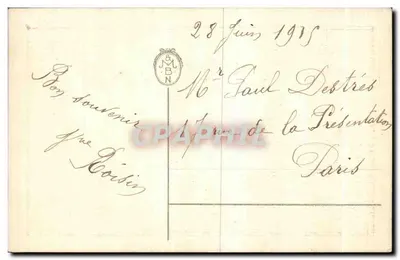 28 Juin 1915
Bon souvenir
Yne Roisin
Mr Paul Destrés
17 rue de la Présentation
Paris